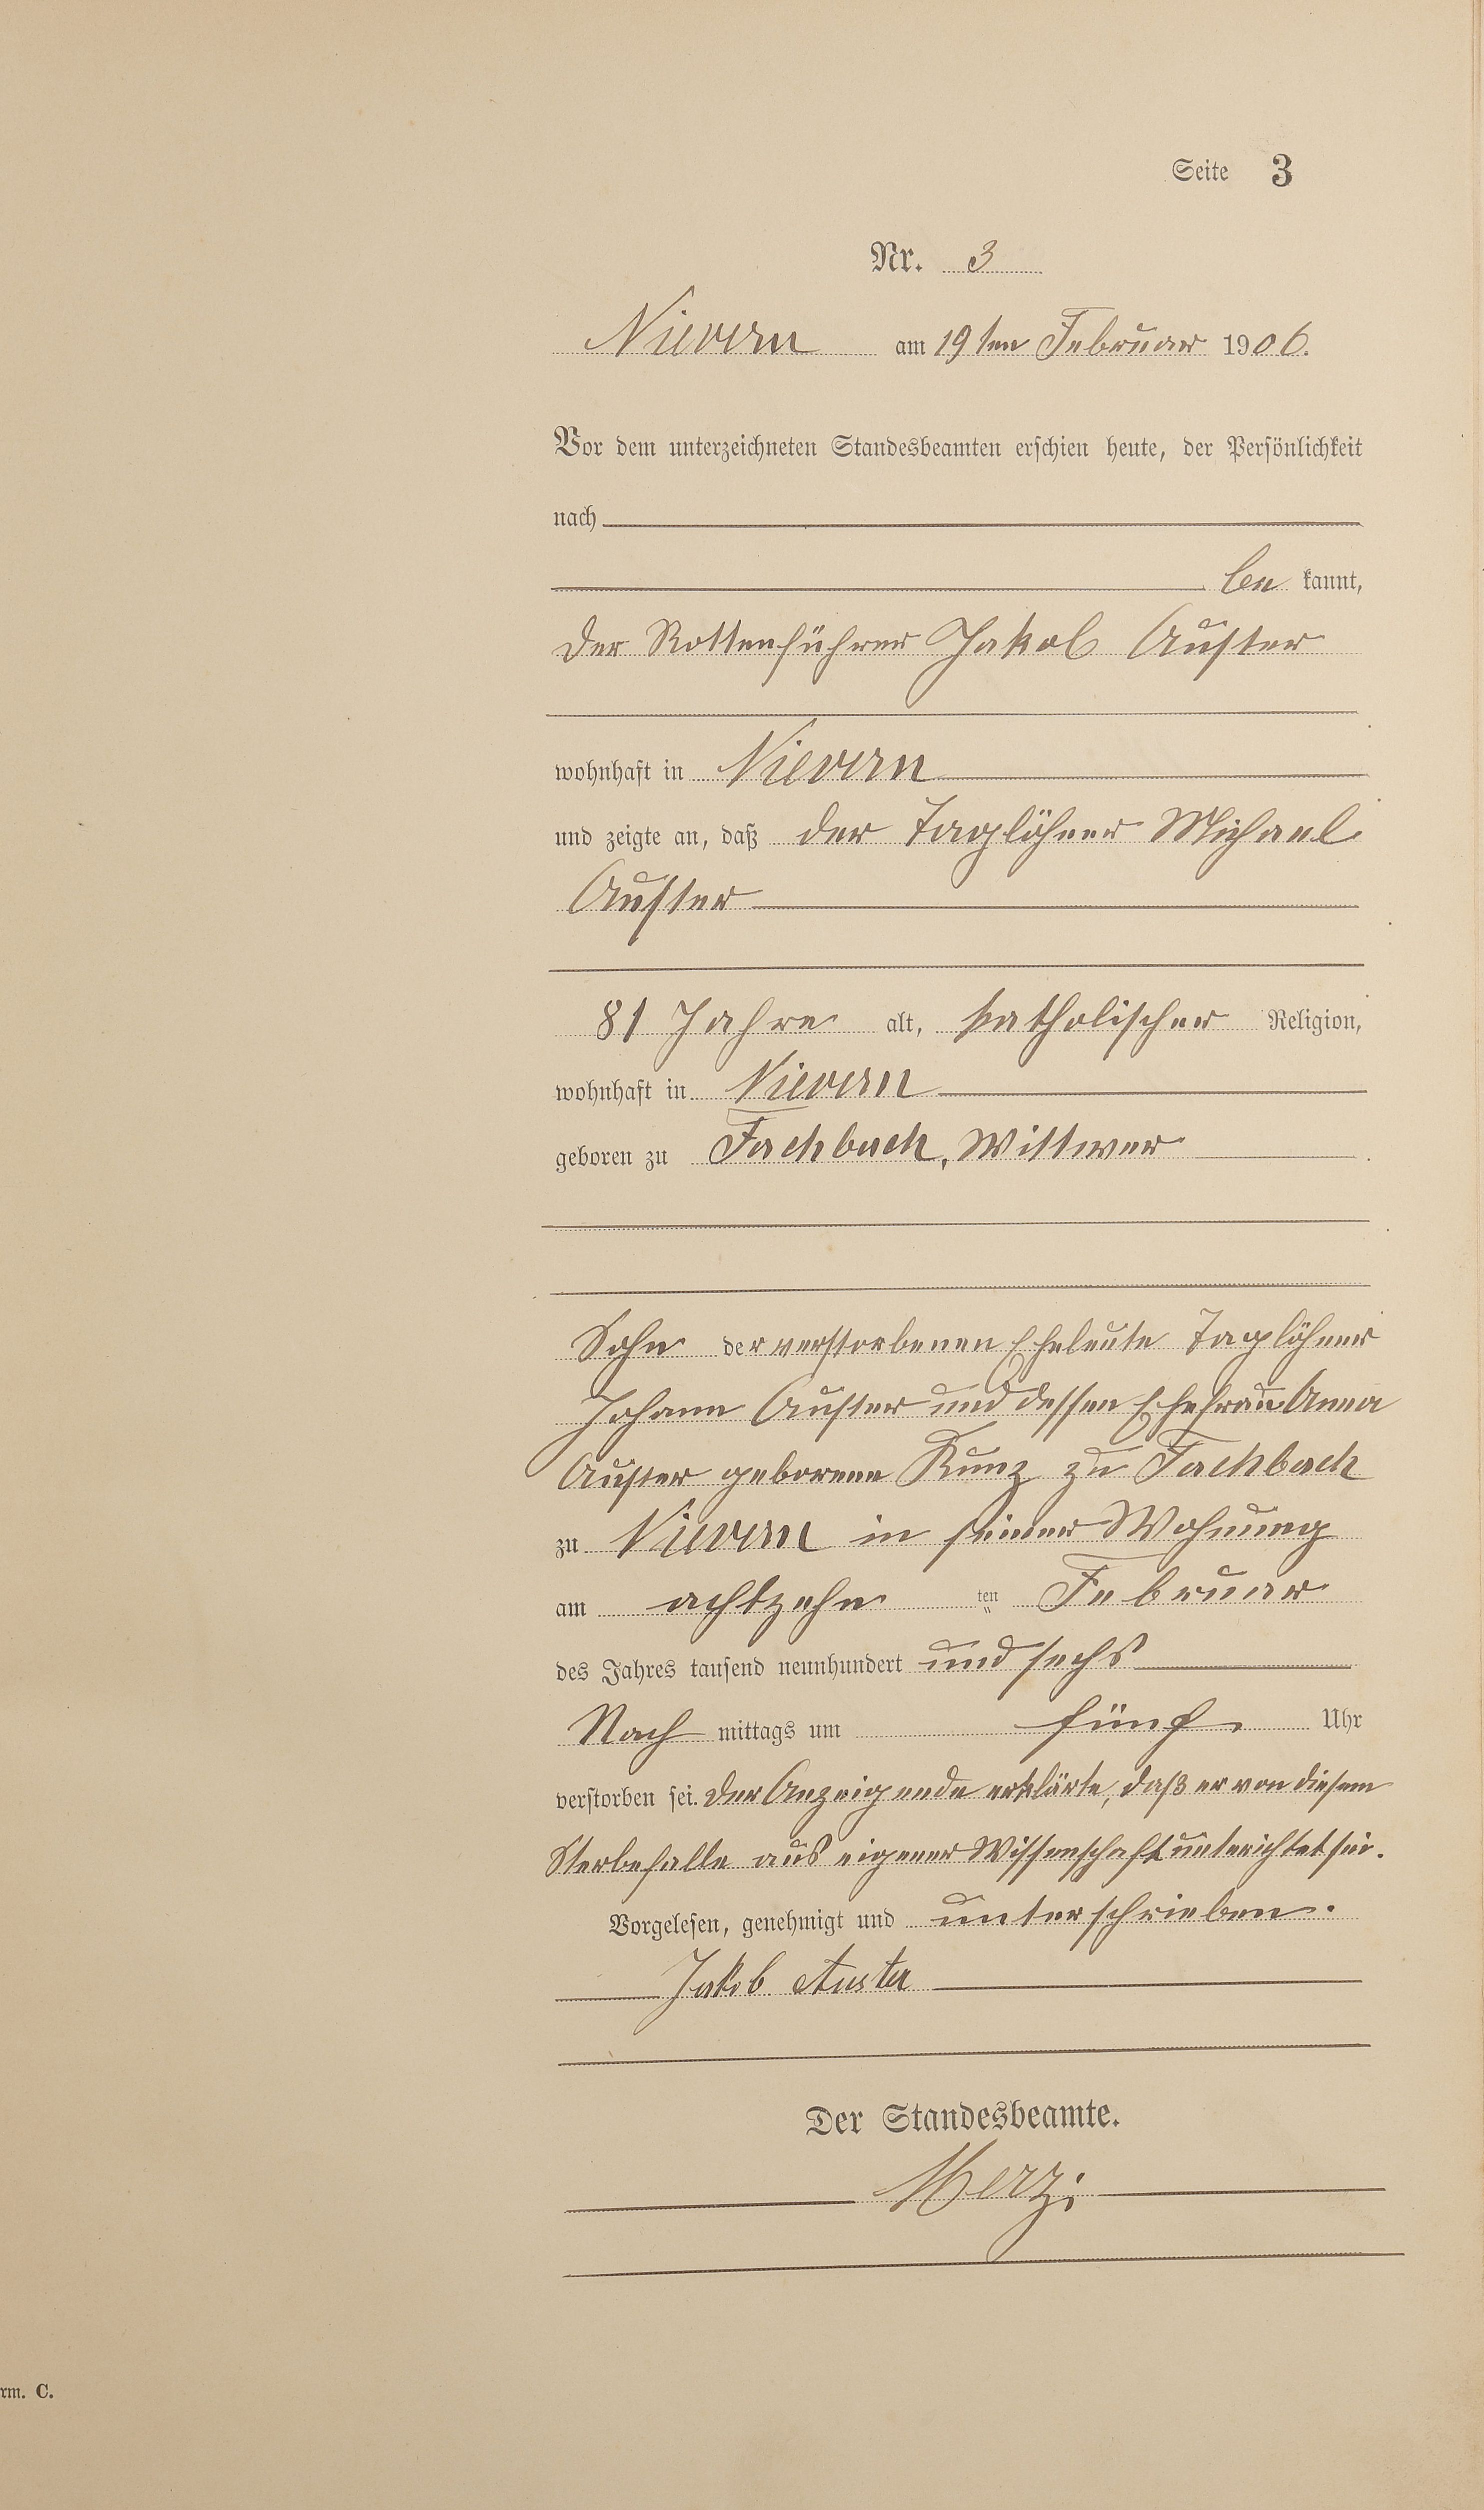 Seite 3
Nr. 3
Nievern am 19ten Februar 1906.
Vor dem unterzeichneten Standesbeamten erschien heute, der Persönlichkeit
nach
be kannt,
der Rottenführer Jakob Auster
wohnhaft in Nievern
und zeigte an, daß der Taglöhner Michael
Auster
81 Jahre alt, katholischer Religion,
wohnhaft in Nievern
geboren zu Fachbach, Wittwer
Sohn der verstorbenen Eheleute Taglöhner
Johann Auster und dessen Ehefrau Anna
Auster geborene Kunz zu Fachbach
zu Nievern in seiner Wohnung
am achtzehn ten Februar
des Jahres tausend neunhundert und sechs
Nach mittags um fünf Uhr
verstorben sei. Der Anzeigende erklärte, daß er von diesem
Sterbefalle aus eigener Wissenschaft unterichtet sei.
Vorgelesen, genehmigt und unterschrieben.
Jakob Auster
Der Standesbeamte.
Merz
rm. C.